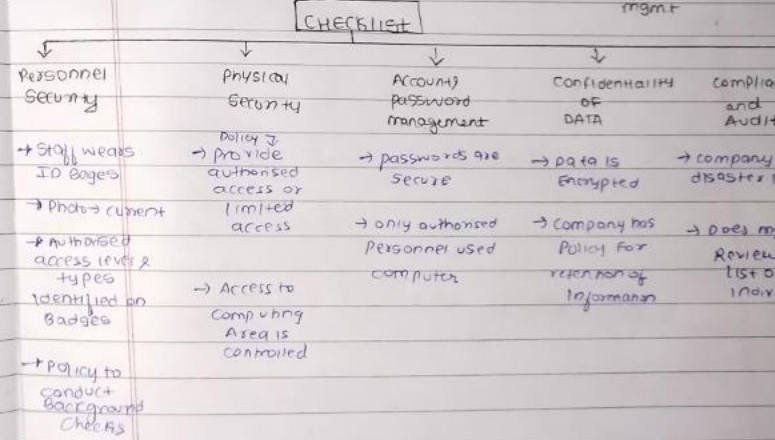 mgmt
CHECKLIST
Personnel
Security
→ Staff wears
ID Bages
→ Photo → current
→ Authorised
access level &
types
identified on
Badges
→ Policy to
conduct
Background
Checks
Physical
Security
Policy
→ Provide
authorised
access or
limited
access
→ Access to
Computing
Area is
controlled
Account &
password
management
→ passwords are
secure
→ only authorised
Personnel used
computer
Confidentiality
OF
DATA
→ Data is
Encrypted
→ Company has
Policy For
retention of
Information
Complia
and
Audit
→ company
disaster
→ Does m
Review
list o
indiv